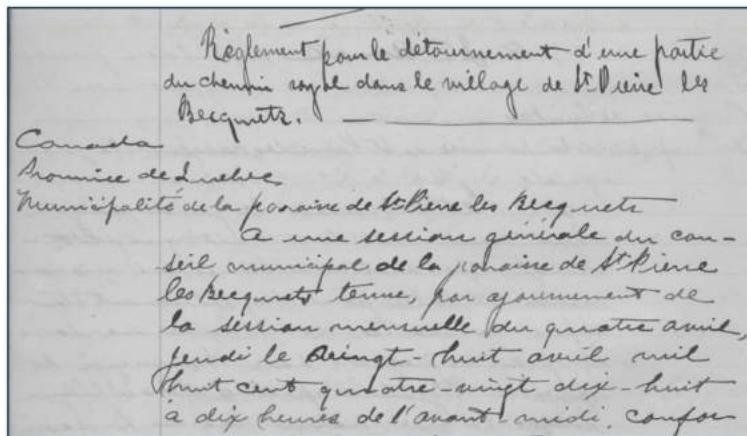 Règlement pour le détournement d'une partie
du chemin royal dans le village de St Pierre les
Becquets.
Canada
Province de Québec
Municipalité de la paroisse de St Pierre les Becquets
A une session générale du con-
seil municipal de la paroisse de St Pierre
les Becquets tenue, par ajournement de
la session mensuelle du quatre avril,
jeudi le vingt-huit avril mil
huit cent quatre-vingt dix-huit
à dix heures de l'avant-midi, confor